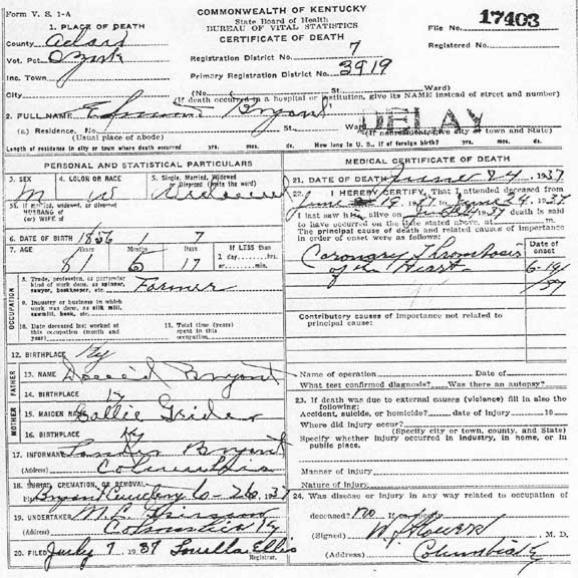 Form V. S. 1-A
COMMONWEALTH OF KENTUCKY
State Board of Health
BUREAU OF VITAL STATISTICS
CERTIFICATE OF DEATH
File No. 17403
Registered No.
1. PLACE OF DEATH
County Adair
Vot. Pct. Ozark
Inc. Town
City
Registration District No. 7
Primary Registration District No. 3919
(No. St. Ward)
(If death occurred in a hospital or institution, give its NAME instead of street and number)
2. FULL NAME Bryant
DELAY
(a) Residence, No. St. Ward
(Usual place of abode) (If nonresident give city or town and State)
Length of residence in city or town where death occurred yrs. mos. ds. How long in U. S., if of foreign birth? yrs. mos. ds.
PERSONAL AND STATISTICAL PARTICULARS
3. SEX M
4. COLOR OR RACE W
5. Single, Married, Widowed or Divorced (write the word) Widowed
5a. If married, widowed, or divorced
HUSBAND of
(or) WIFE of
6. DATE OF BIRTH 1856 7
7. AGE Years Months Days If LESS than
1 day, hrs.
or min.
81 5 17
OCCUPATION
8. Trade, profession, or particular kind of work done, as spinner, sawyer, bookkeeper, etc. Farmer
9. Industry or business in which work was done, as silk mill, sawmill, bank, etc.
10. Date deceased last worked at this occupation (month and year)
11. Total time (years) spent in this occupation
12. BIRTHPLACE Ky
FATHER
13. NAME David Bryant
14. BIRTHPLACE Ky
MOTHER
15. MAIDEN NAME Grider
16. BIRTHPLACE Ky
17. INFORMANT Bryant
(Address) Columbia
18. BURIAL, CREMATION, OR REMOVAL
Place Bryant Cemetery 6-26, 37
19. UNDERTAKER
(Address) Columbia Ky
20. FILED July 7, 1937 Louella Ellis
Registrar.
MEDICAL CERTIFICATE OF DEATH
21. DATE OF DEATH June 24, 1937
22. I HEREBY CERTIFY, That I attended deceased from
June 19, 1937 to June 24, 1937
I last saw h alive on June 24 1937 death is said
to have occurred on the date stated above, at m.
The principal cause of death and related causes of importance
in order of onset were as follows:
Date of onset
Coronary Thrombosis
of the Heart
6-19
/37
Contributory causes of importance not related to
principal cause:
Name of operation Date of
What test confirmed diagnosis? Was there an autopsy?
23. If death was due to external causes (violence) fill in also the
following:
Accident, suicide, or homicide? date of injury 19
Where did injury occur?
(Specify city or town, county, and State)
Specify whether injury occurred in industry, in home, or in
public place.
Manner of injury
Nature of injury
24. Was disease or injury in any way related to occupation of
deceased? no
(Signed) M. D.
(Address) Columbia Ky